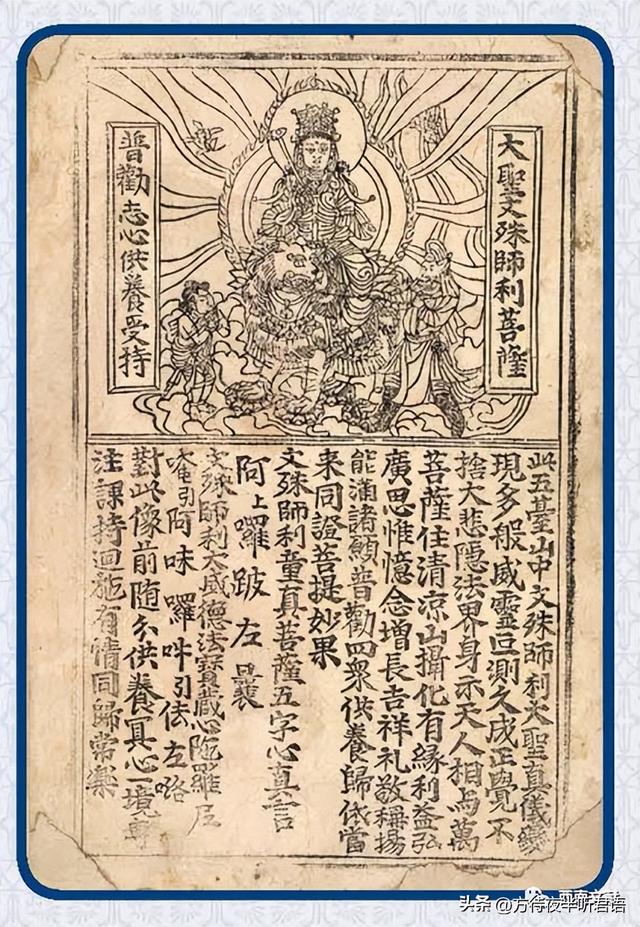 大聖文殊師利菩薩
普勸志心供養受持
此五臺山中文殊師利大聖真儀變
現多般威靈叵測久成正覺不
捨大悲隱法界身示天人相与萬
菩薩住清涼山攝化有緣利益弘
廣思惟憶念增長吉祥礼敬稱揚
能滿諸願普勸四眾供養歸依當
來同證菩提妙果
文殊師利童真菩薩五字心真言
阿上囉跛左曩
文殊師利大威德法寶藏心陁羅尼
唵引阿味囉吽引佉左咯
對此像前随分供養冥心一境專
注課持迴施有情同歸常樂
头条 @方待夜半听君语